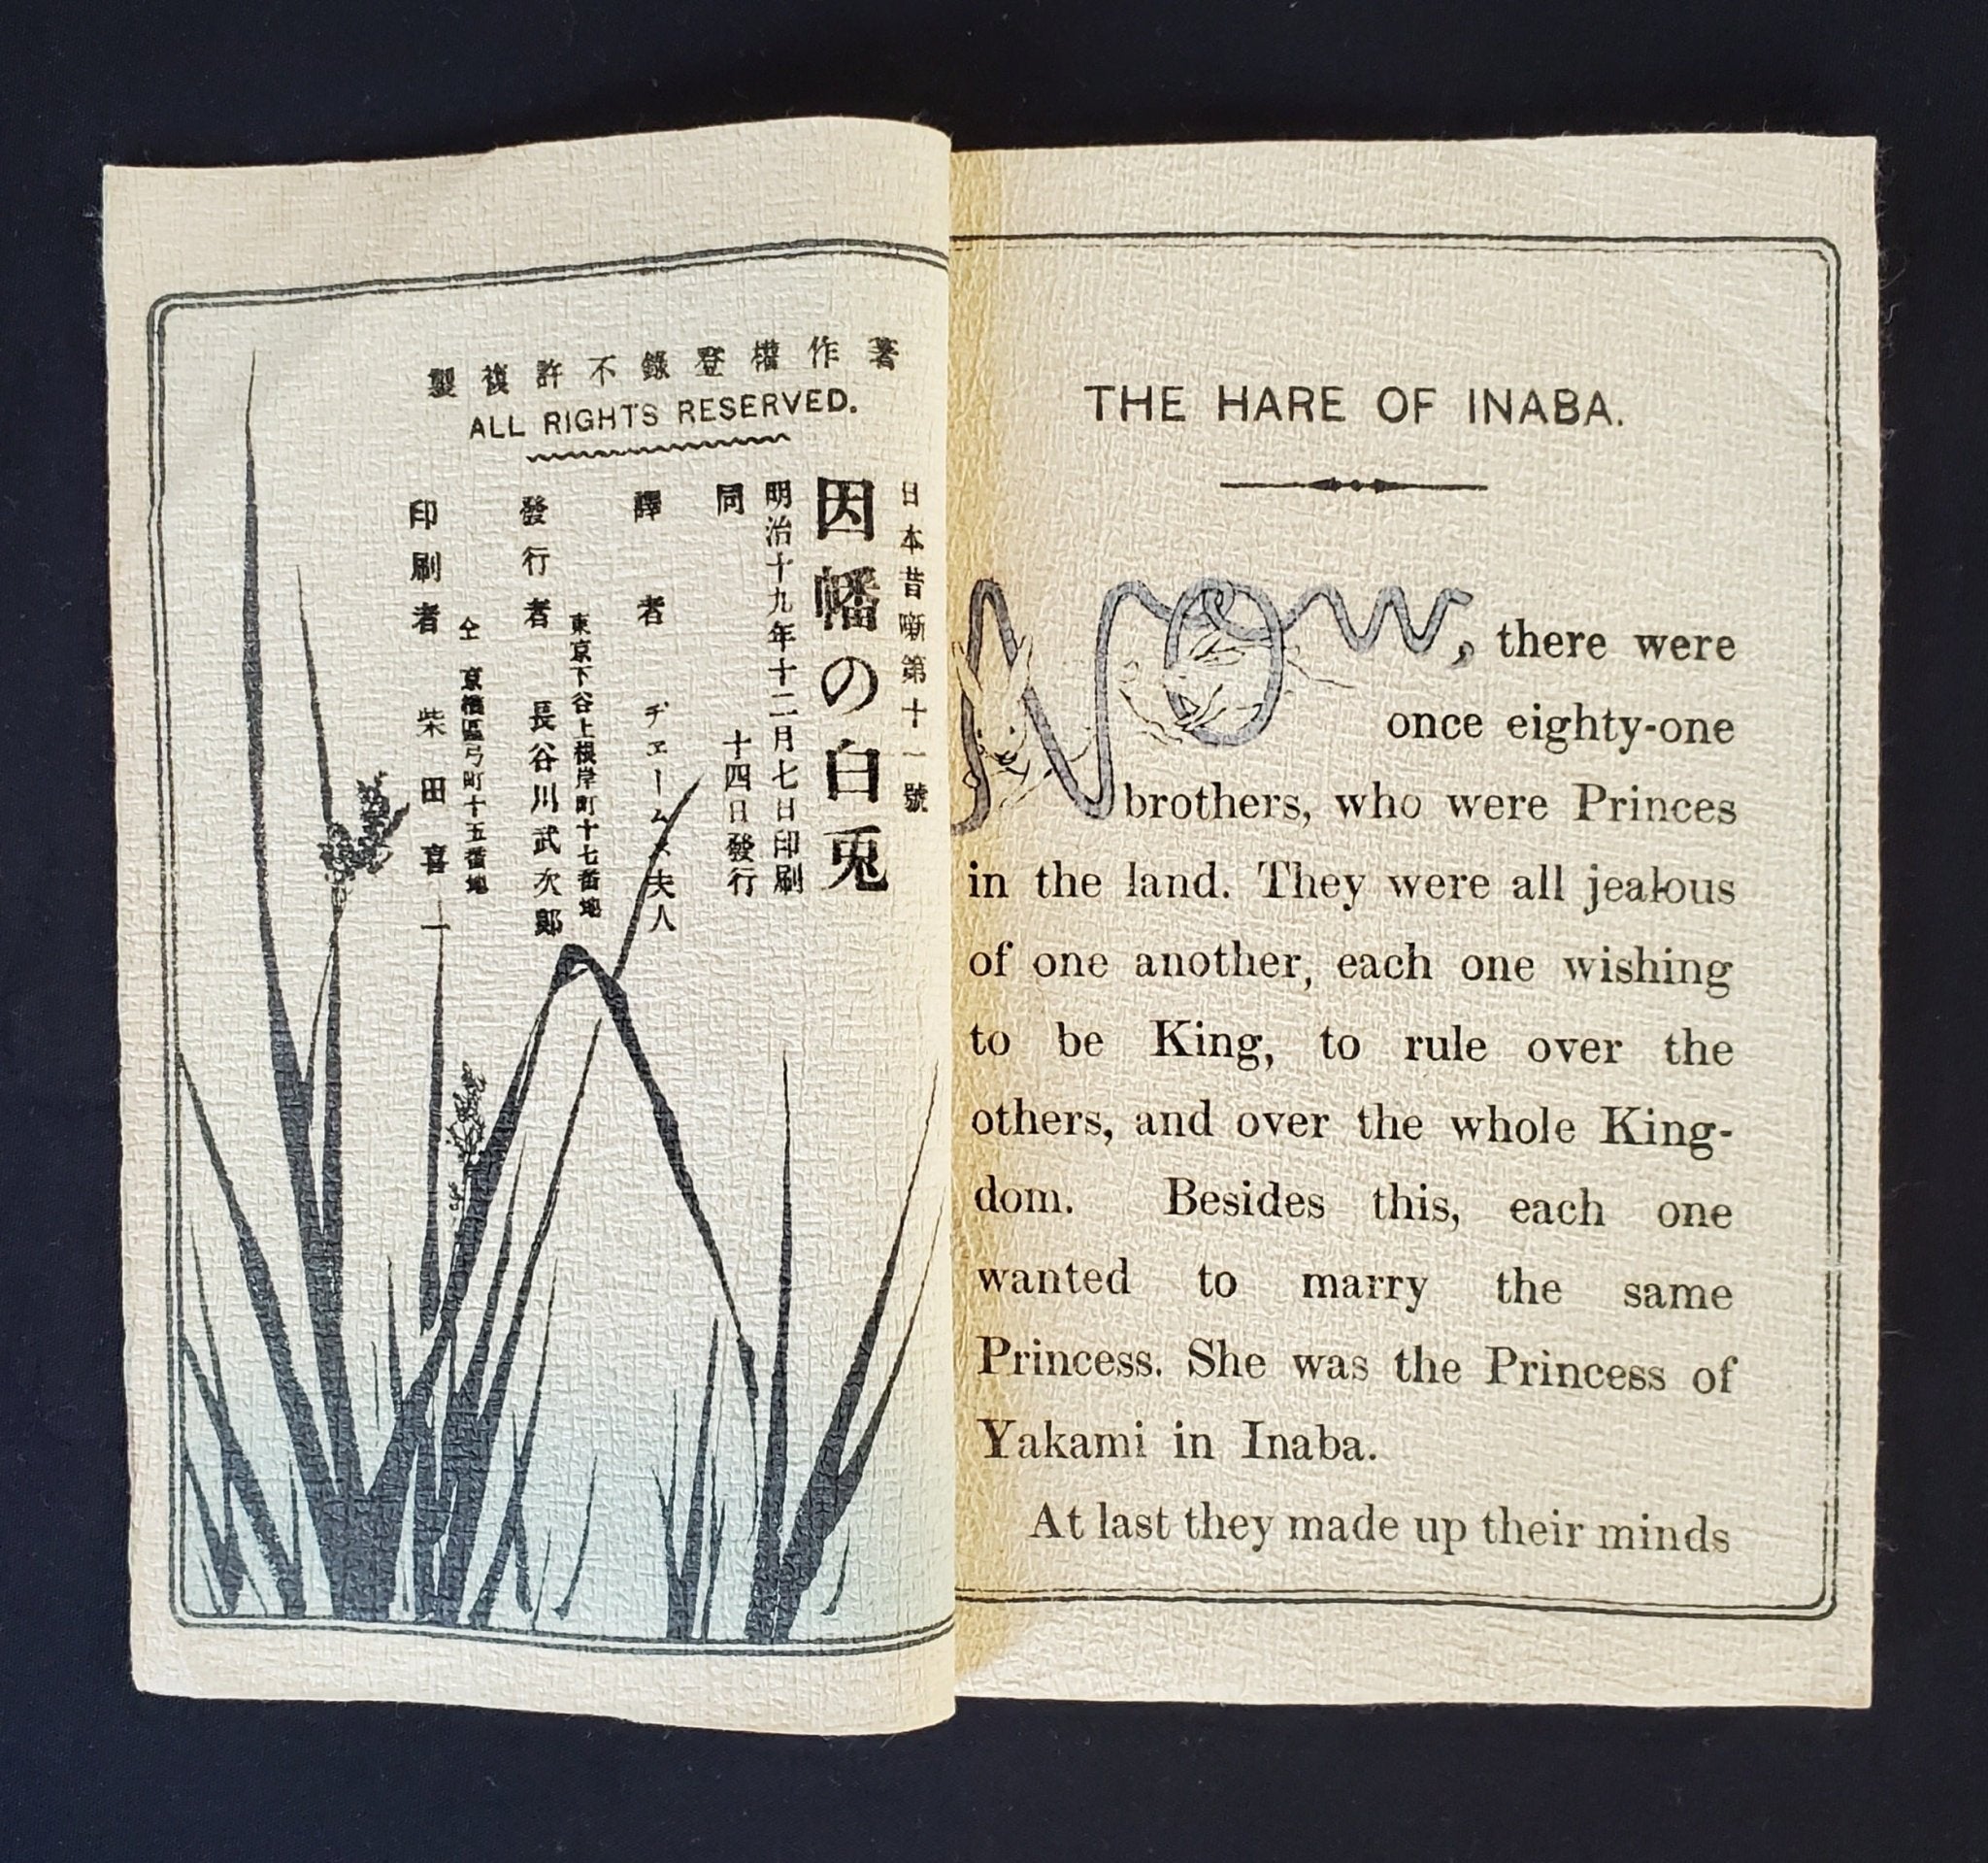 著作權登錄不許複製
ALL RIGHTS RESERVED.
日本昔噺第十一號
因幡の白兎
明治十九年十二月七日印刷
同 十四日發行
譯者 ヂエームス夫人
東京下谷上根岸町十七番地
發行者 長谷川武次郎
仝 京橋區弓町十五番地
印刷者 柴田喜一
THE HARE OF INABA.
Now, there were
once eighty-one
brothers, who were Princes
in the land. They were all jealous
of one another, each one wishing
to be King, to rule over the
others, and over the whole King-
dom. Besides this, each one
wanted to marry the same
Princess. She was the Princess of
Yakami in Inaba.
At last they made up their minds